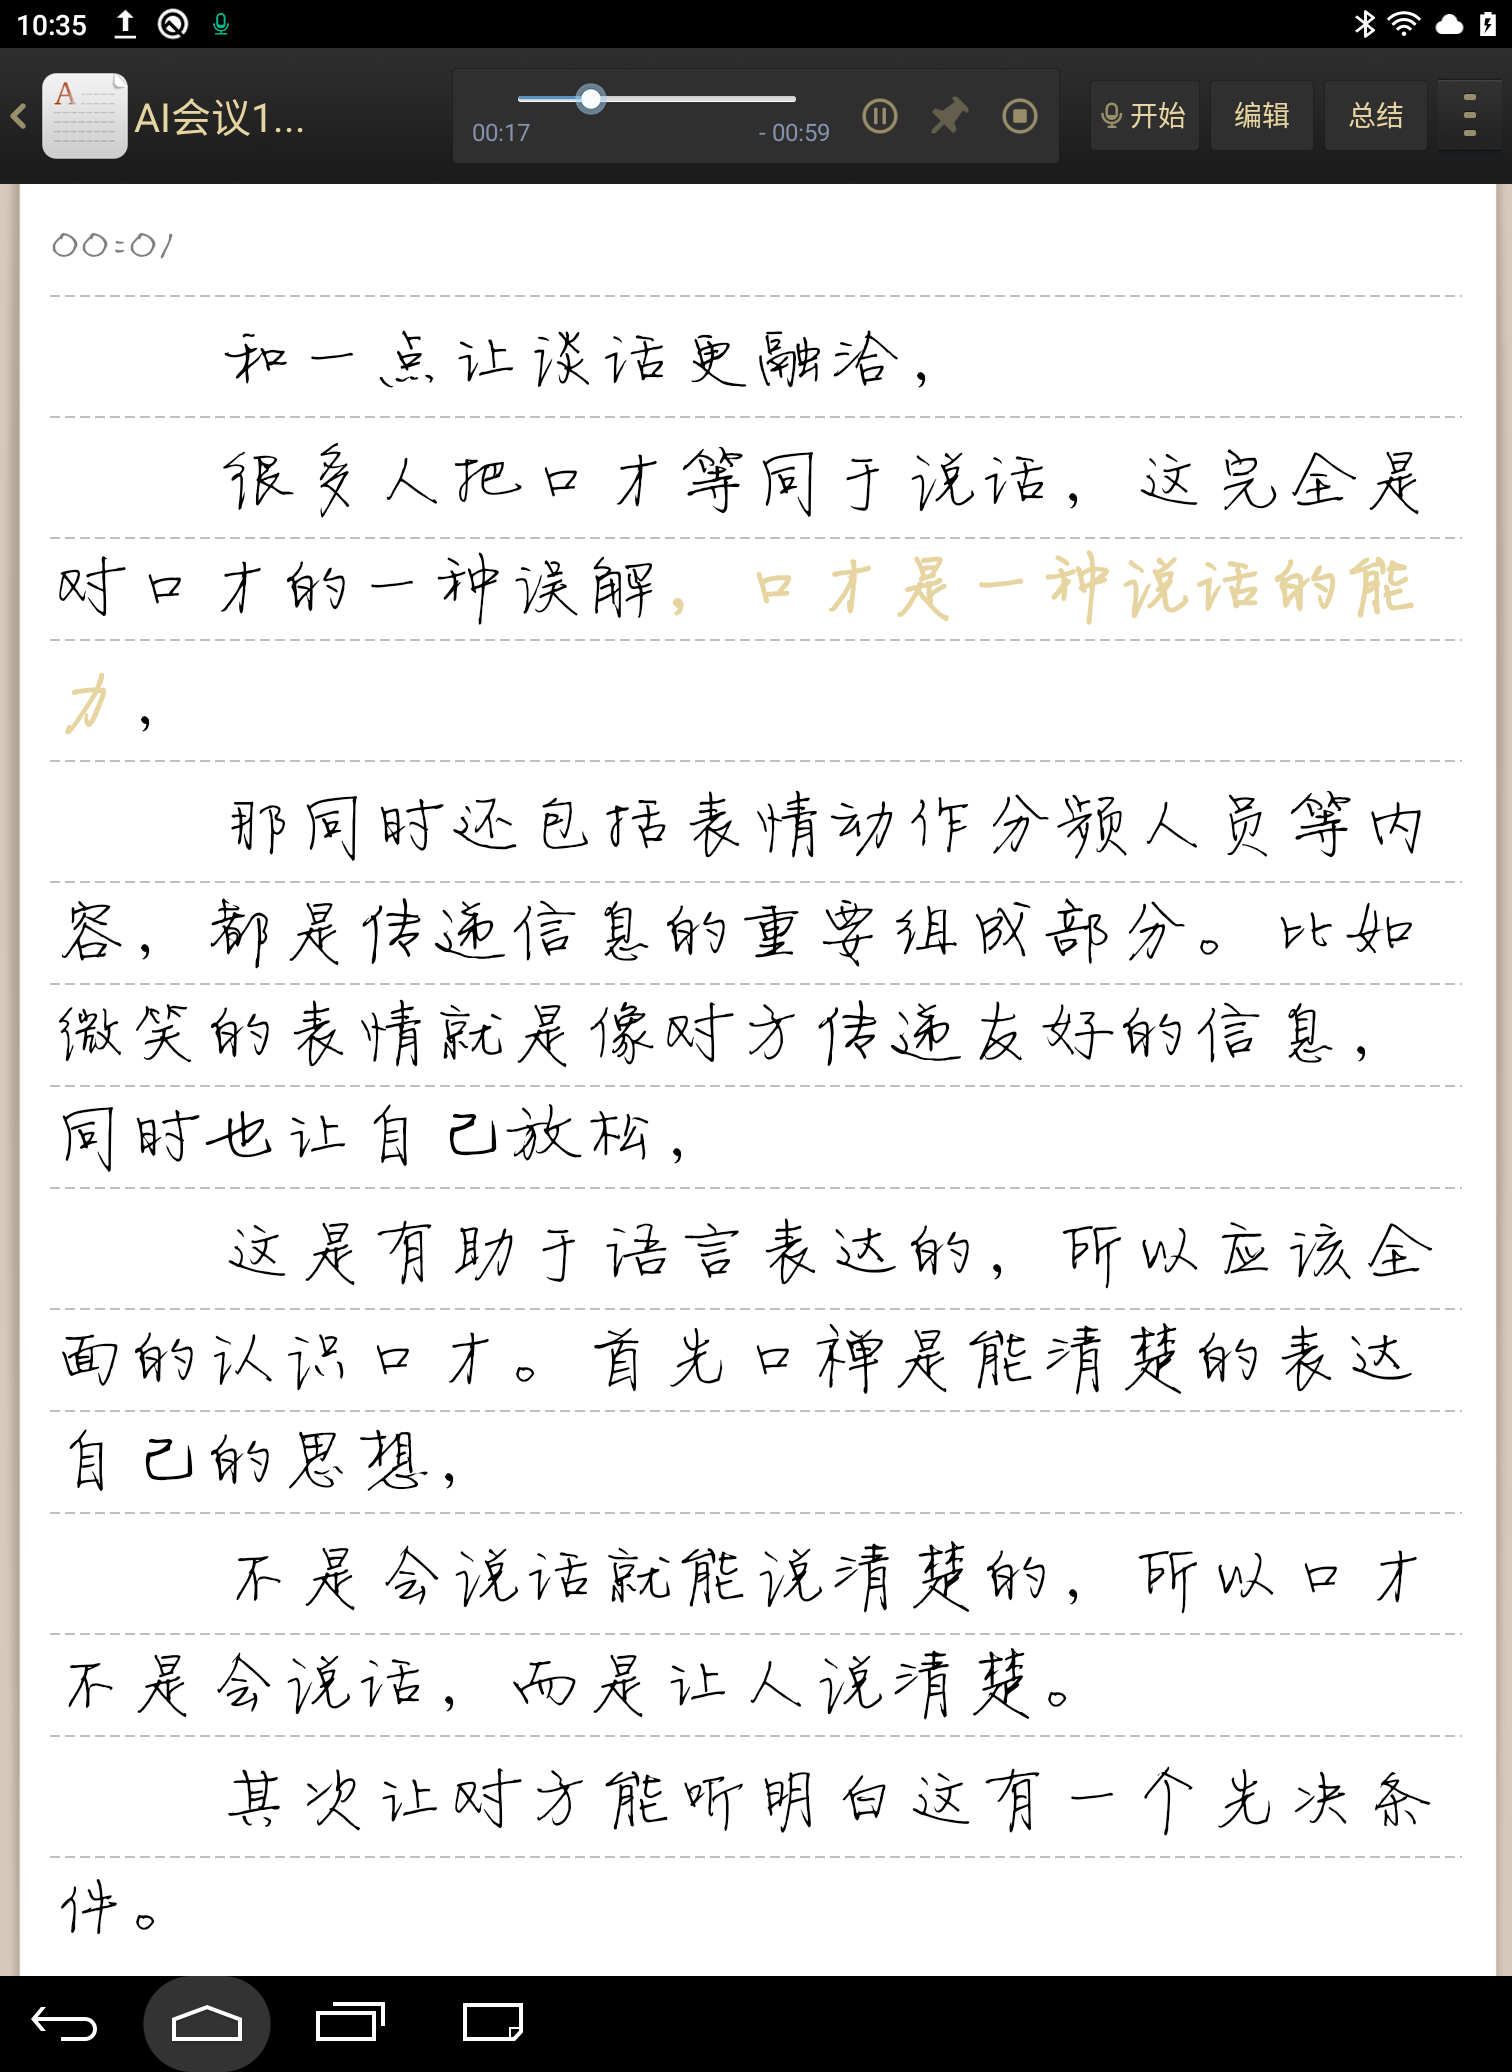 10:35
AI会议1...
00:17
- 00:59
开始
编辑
总结
00:01
和一点让谈话更融洽，
很多人把口才等同于说话，这完全是
对口才的一种误解，口才是一种说话的能
力，
那同时还包括表情动作分频人员等内
容，都是传递信息的重要组成部分。比如
微笑的表情就是像对方传递友好的信息，
同时也让自己放松，
这是有助于语言表达的，所以应该全
面的认识口才。首先口禅是能清楚的表达
自己的思想，
不是会说话就能说清楚的，所以口才
不是会说话，而是让人说清楚。
其次让对方能听明白这有一个先决条
件。